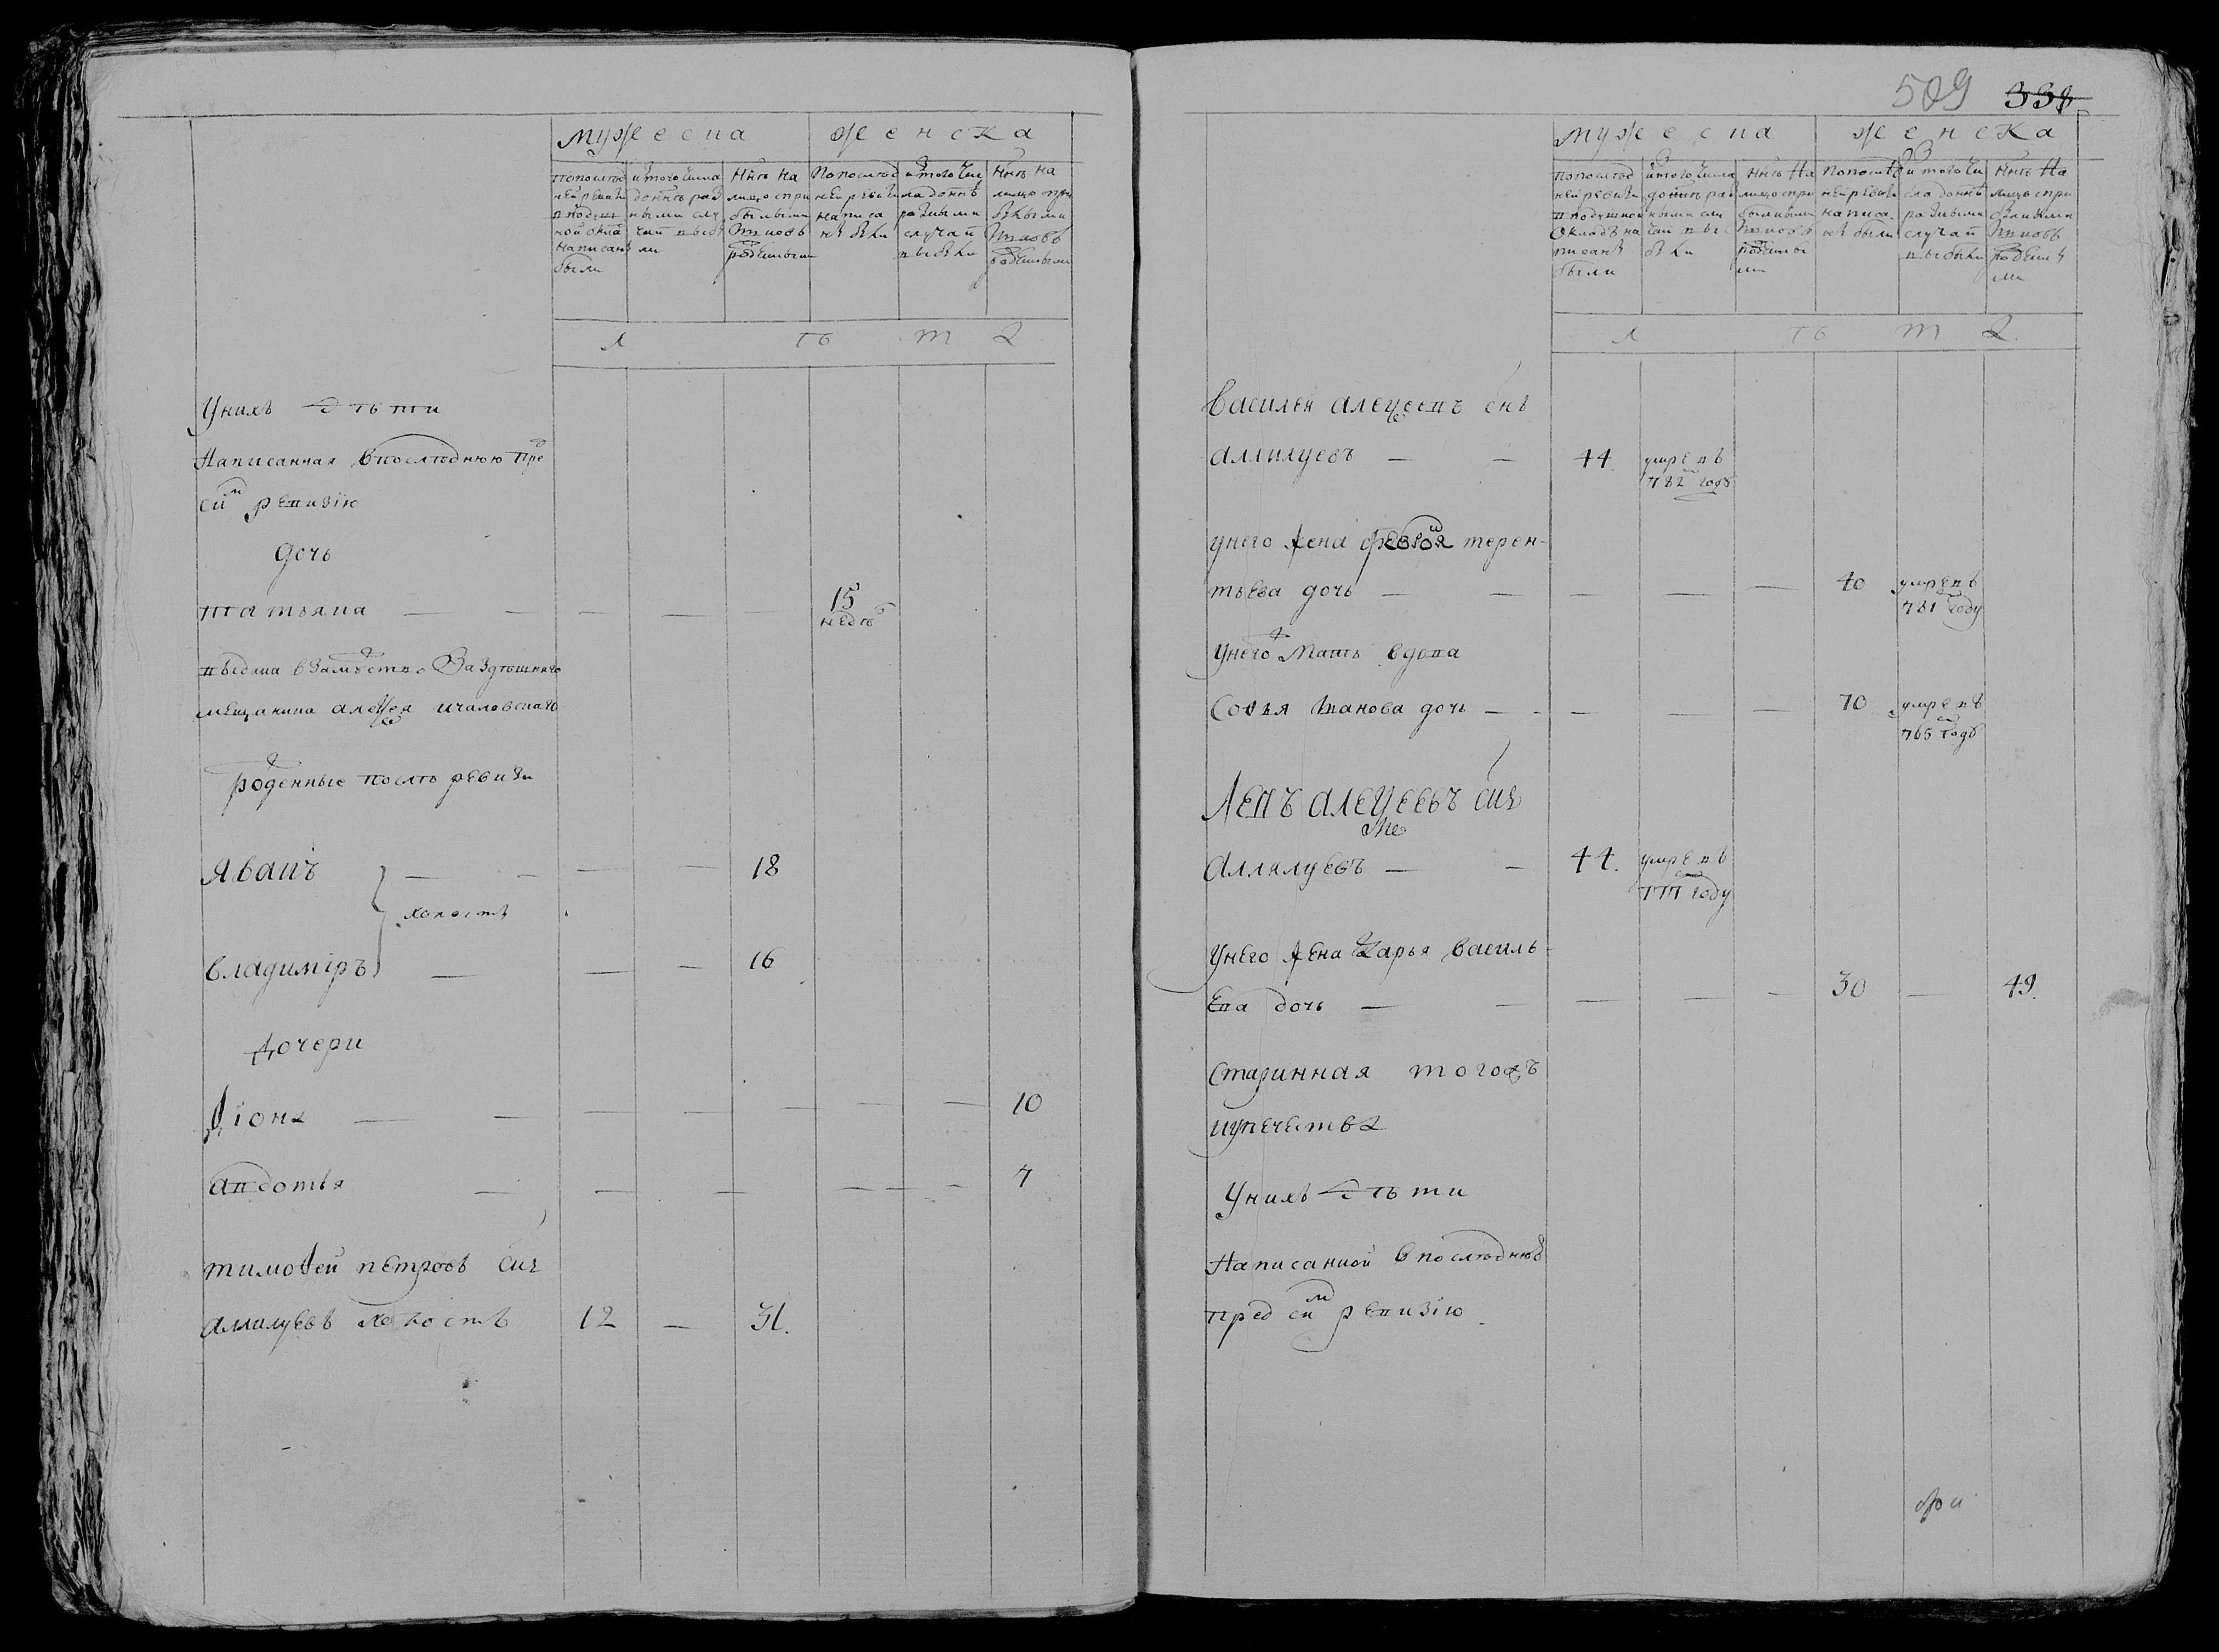 мужеска женска
По последней ревизии в подушной окладъ написаны были
изъ того числа до ннѣ разными случаи выбыли
Ннѣ на лицо с прибылыми и вновь рожденными
По последней ревизии написаны были
изъ того числа до ннѣ разными случаи выбыли
Ннѣ на лицо с прибылыми и вновь рожденными
л ѣ т а
У нихъ дѣти
Написанная в последнюю пред
сим ревизїю
дочь
татьяна — — — — — 15
недѣль
выдана в замужство за здѣшняго
мещанина алексея
рожденные после ревизи
Иванъ — — — — 18
холосты
владимиръ — — — 16
дочери
— — — — — — — 10
авдотья — — — — — — 7
тимофей петровъ снъ
аллилуевъ холостъ 12 — 31.
509 338
мужеска женска
По последней ревизии в подушной окладъ написаны были
изъ того числа до ннѣ разными случаи выбыли
Ннѣ на лицо с прибылыми и вновь рожденными
По последней ревизии написаны были
изъ того числа до ннѣ разными случаи выбыли
Ннѣ на лицо с прибылыми и вновь рожденными
л ѣ т а
василей алексеевъ снъ
аллилуевъ — — 44. умре въ
782 годѣ
у него жена терен-
тьева дочь — — — — — 40 умре въ
781 году
у него мать вдова
Софья иванова дочь — — — — — 70 умре въ
765 годѣ
левъ алексеевъ снъ
аллилуевъ — — 44. умре въ
777 году
у него жена дарья василь-
ева дочь — — — — — 30 — 49.
старинная тогожъ
купечества
у нихъ дѣти
Написанной в последнюю
пред сим ревизїю